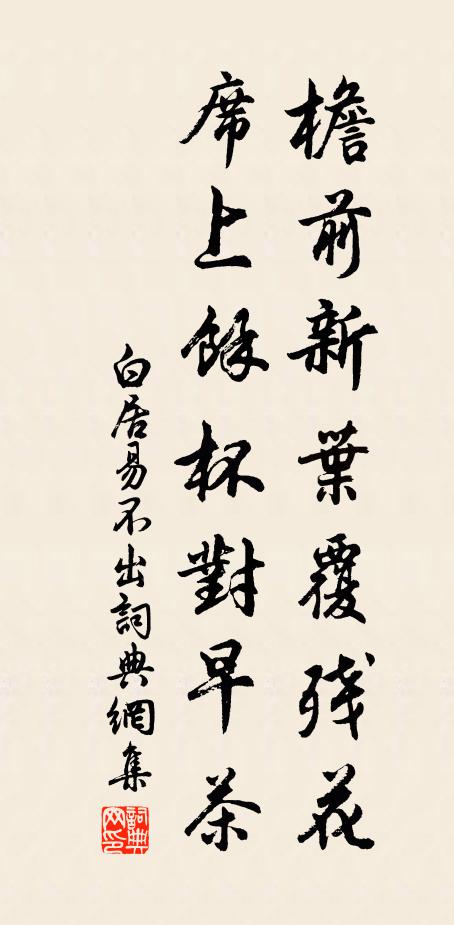 檐前新葉覆残花
席上餘杯對早茶
白居易不出詞典網集
詞典网印